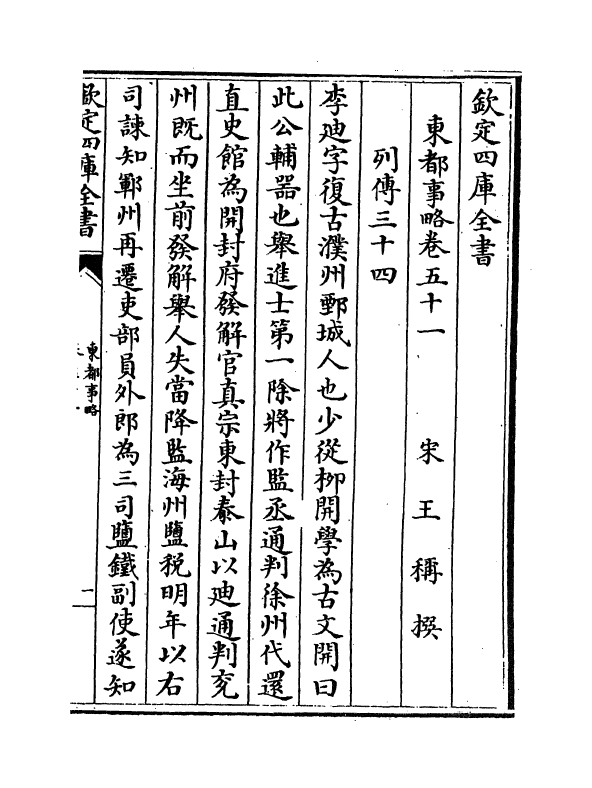 欽定四庫全書
東都事略卷五十一　宋　王　稱　撰
列傳三十四
李迪字復古濮州鄄城人也少從柳開學為古文開曰
此公輔器也舉進士第一除將作監丞通判徐州代還
直史館為開封府發解官真宗東封泰山以迪通判兖
州既而坐前發解舉人失當降監海州鹽税明年以右
司諫知鄆州再遷吏部員外郎為三司鹽鐵副使遂知
欽定四庫全書
東都事略
一